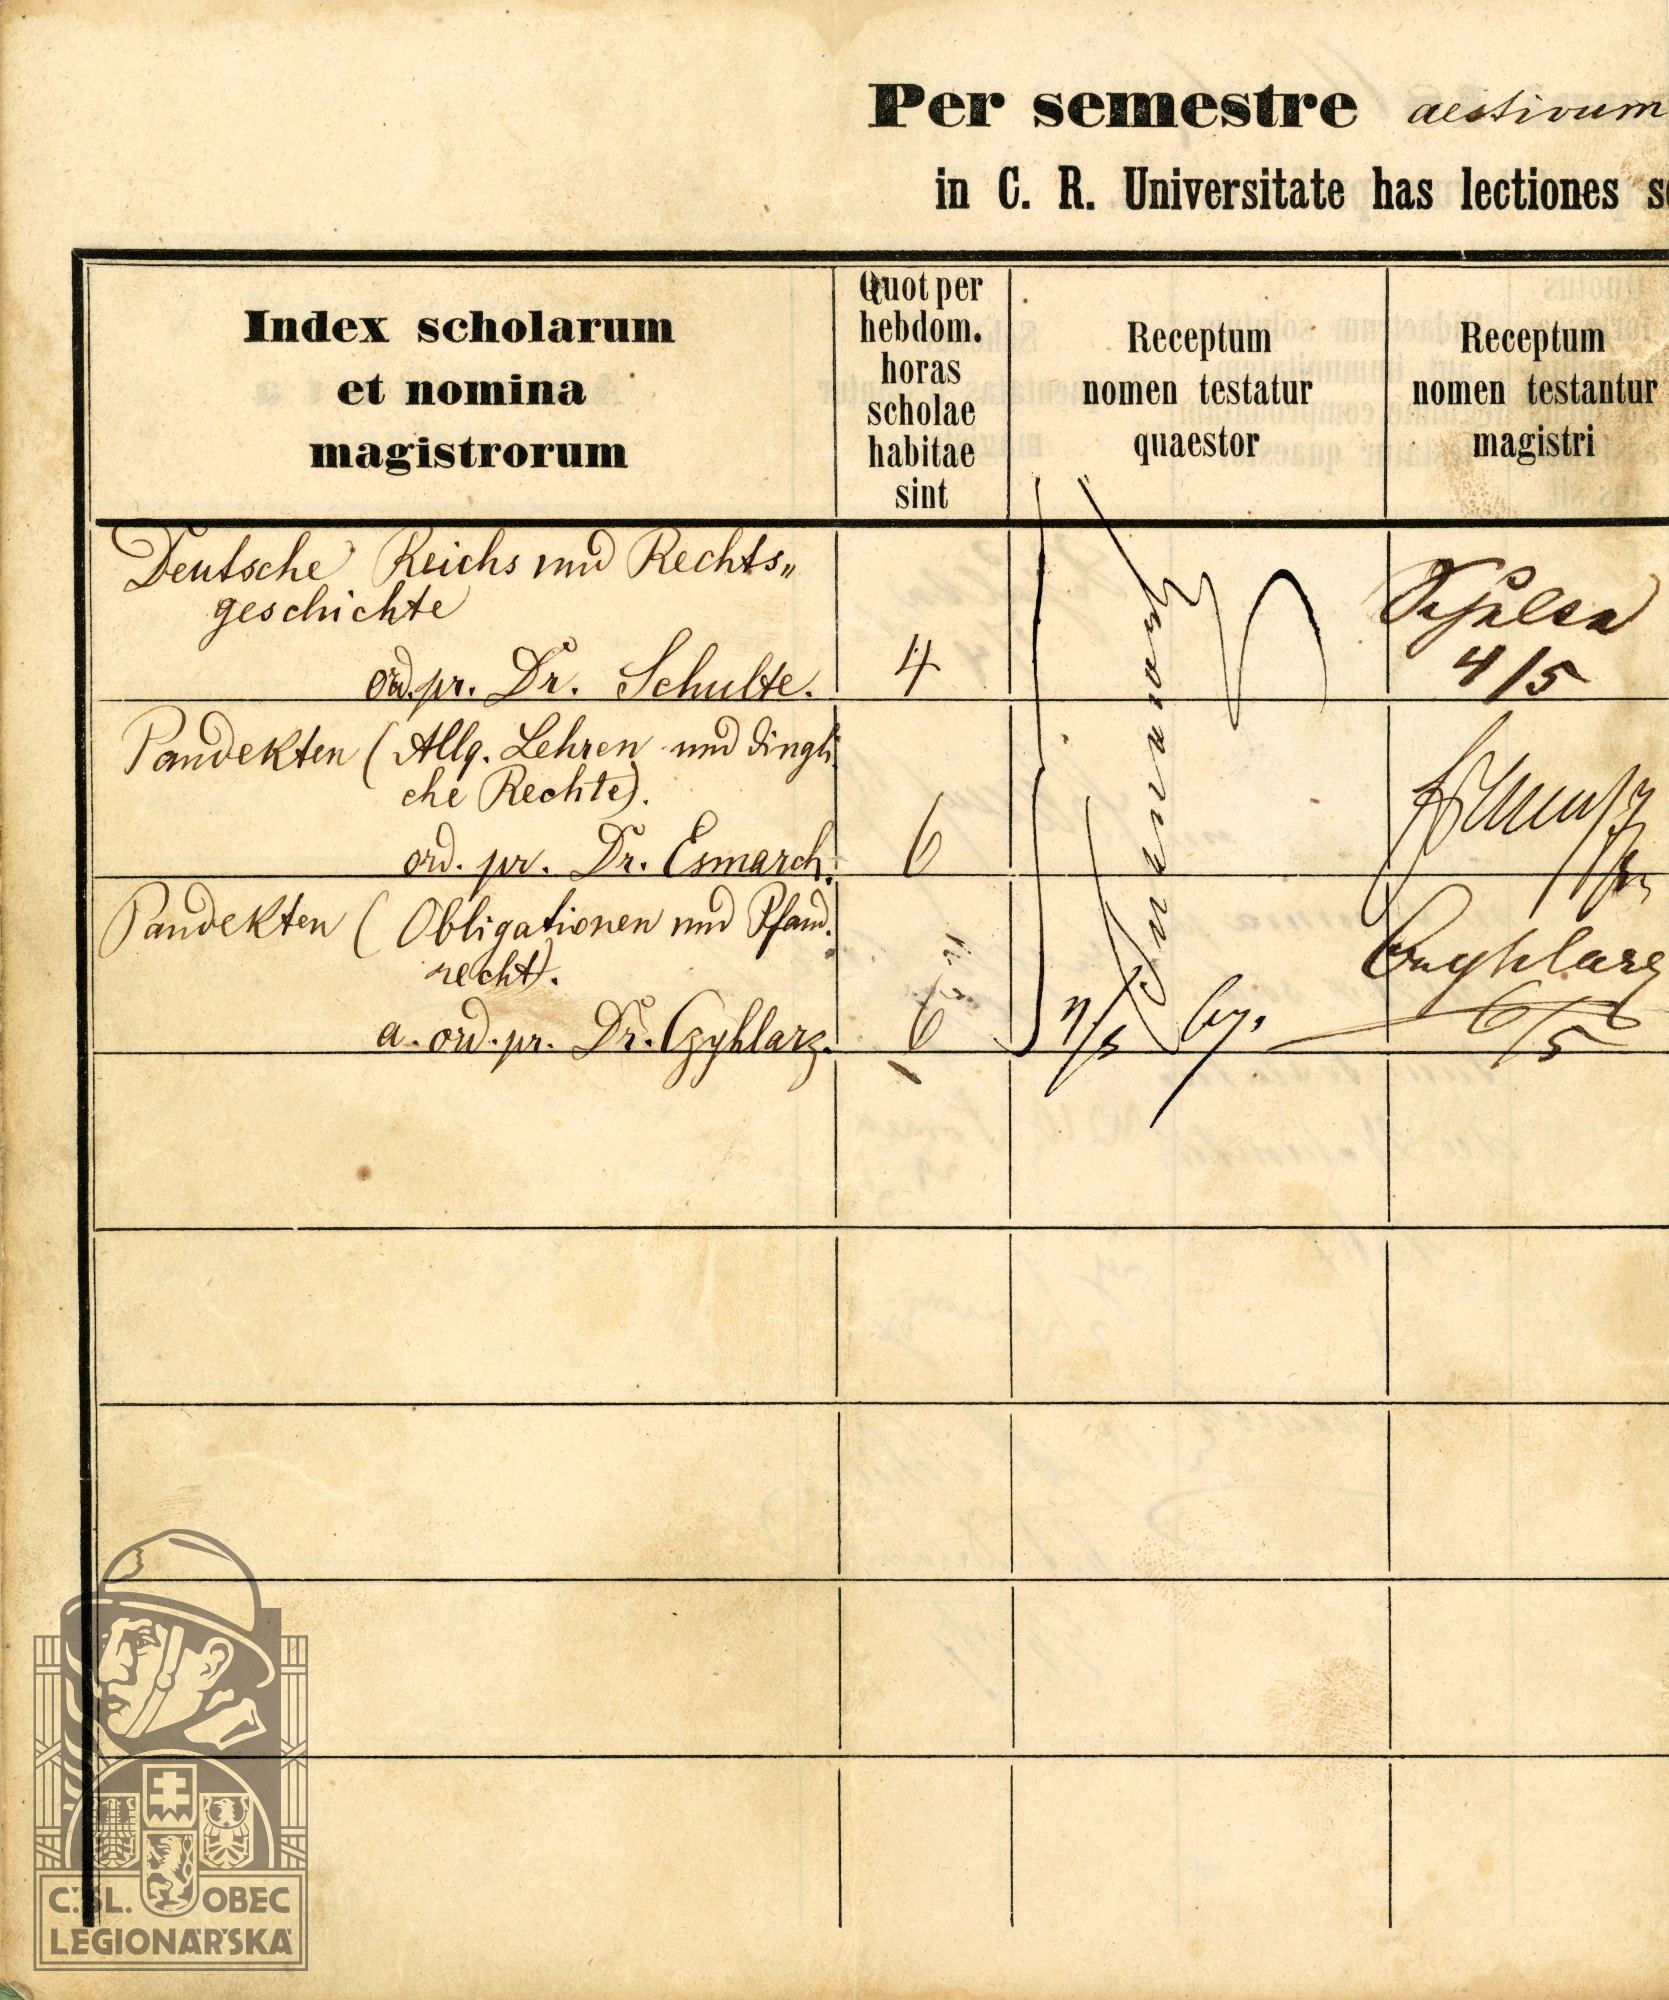 Per semestre aestivum
in C. R. Universitate has lectiones
Index scholarum
et nomina
magistrorum
Quot per
hebdom.
horas
scholae
habitae
sint
Receptum
nomen testatur
quaestor
Receptum
nomen testantur
magistri
Deutsche Reichs und Rechts„
geschichte
ord. pr. Dr. Schulte.
4
4/5
Pandekten (Allg. Lehren und dingli
che Rechte).
ord. pr. Dr. Esmarch.
6
Pandekten (Obligationen und Pfand.
recht).
a. ord. pr. Dr. Czyhlarz.
6
Czyhlarz
6/5
Č.SL. OBEC
LEGIONÁŘSKÁ